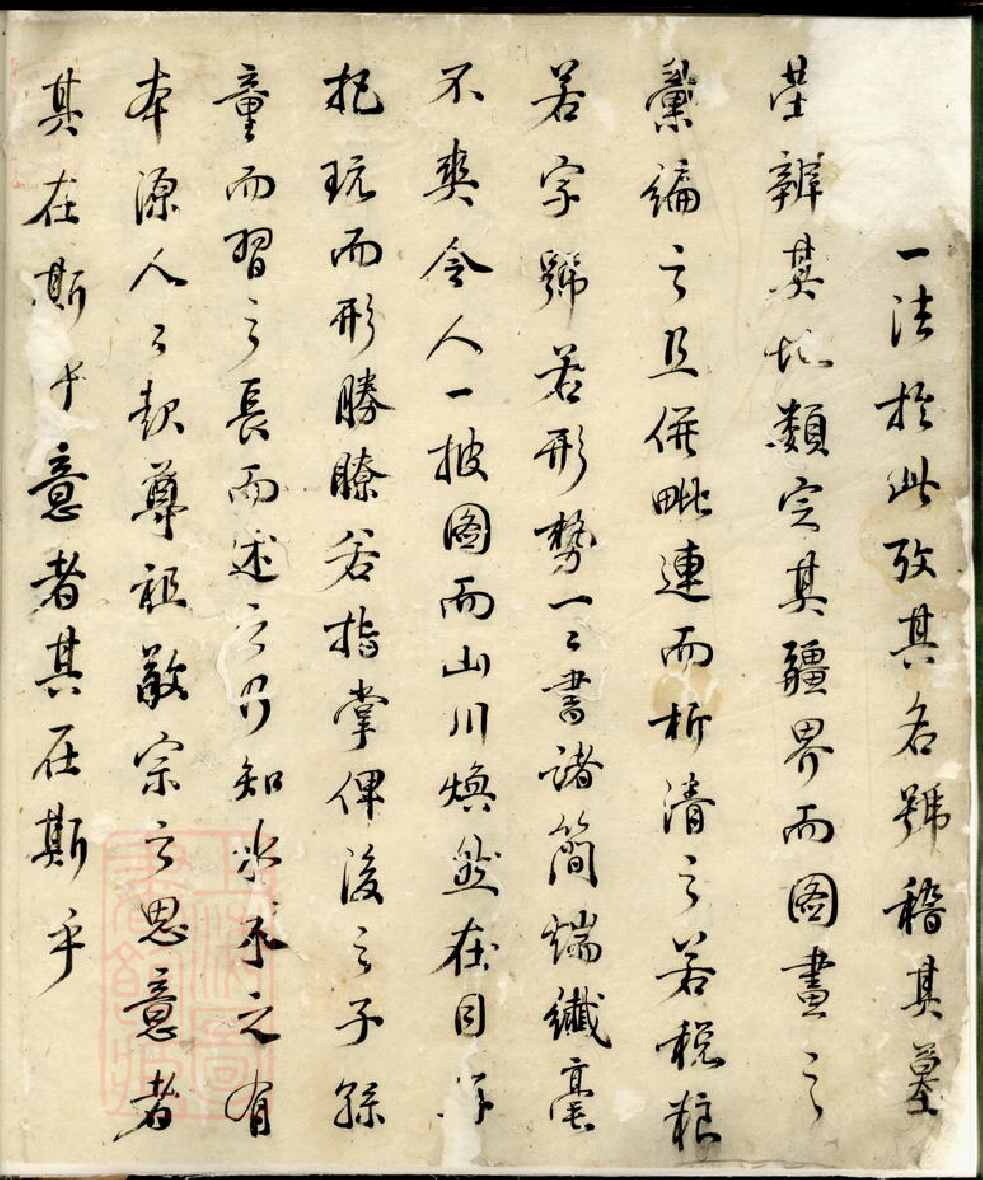 一法於此攷其名號稽其墓
塋辨其圯類定其疆界而圖畫之
彙編之且併毗連而析清之若稅粮
若字號若形勢一〻書諸簡端纖毫
不爽令人一披圖而山川煥然在目
把玩而形勝瞭若指掌俾後之子孫
童而習之長而述之乃知水木之有
本源人〻敦尊祖敬宗之思意者
其在斯乎意者其在斯乎
上海圖書館藏